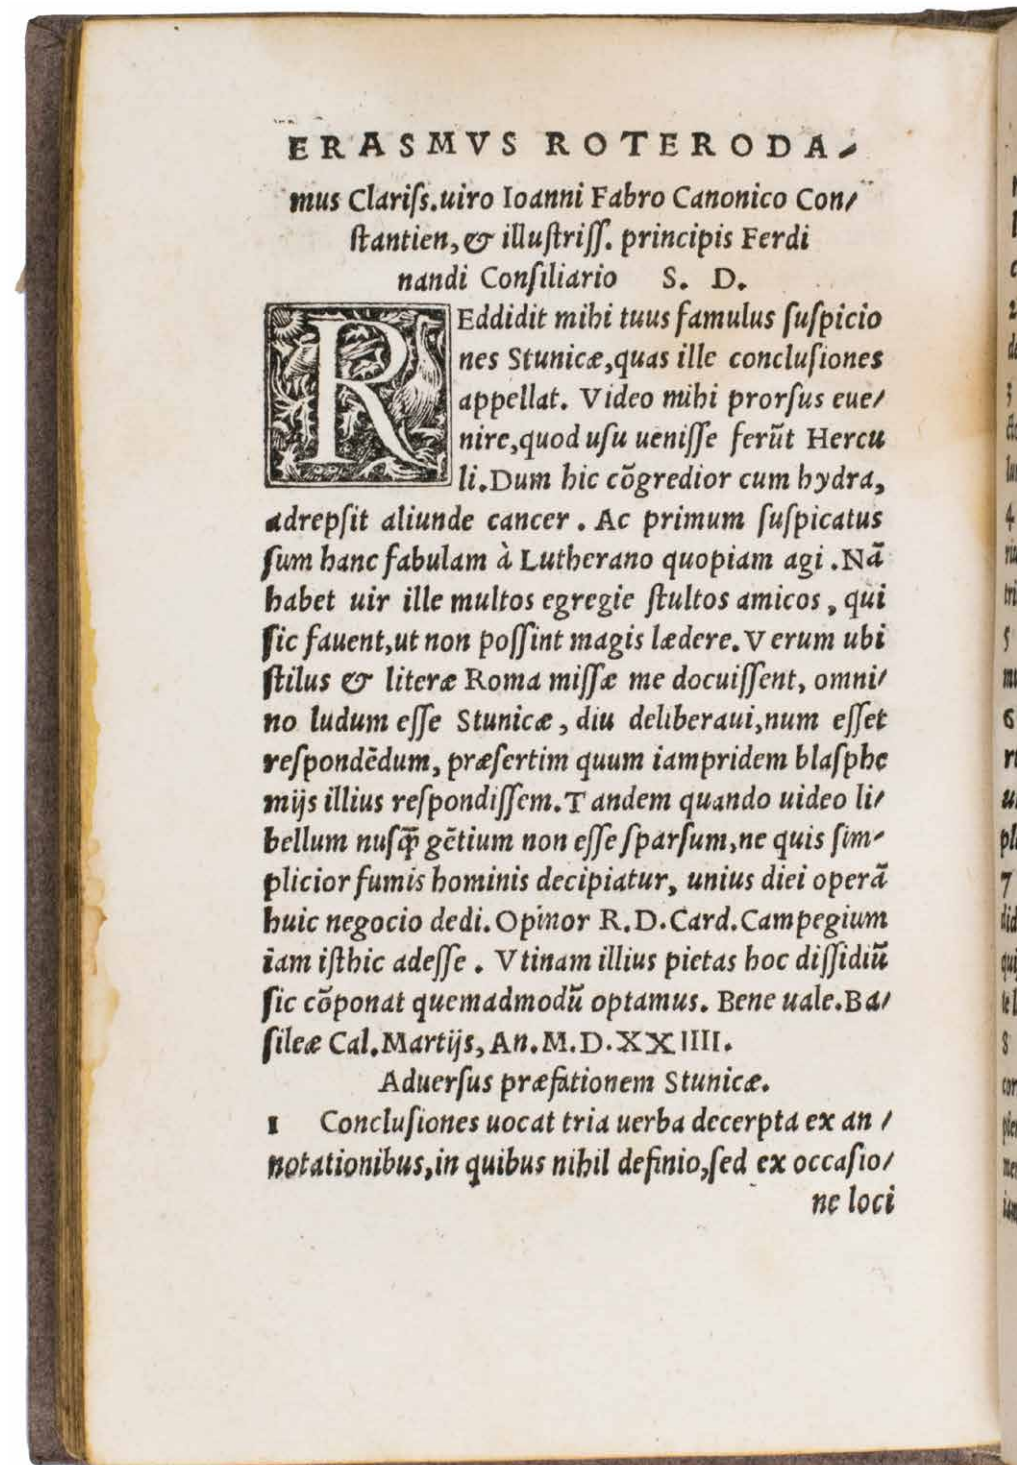 ERASMVS ROTERODA⸗
mus Clariſſ.uiro Ioanni Fabro Canonico Con⸗
ſtantien, & illuſtriſſ. principis Ferdi
nandi Conſiliario S. D.
REddidit mihi tuus famulus ſuſpicio
nes Stunicæ,quas ille concluſiones
appellat. Video mihi prorſus eue⸗
nire,quod uſu ueniſſe ferũt Hercu
li.Dum hic cõgredior cum hydra,
adrepſit aliunde cancer. Ac primum ſuſpicatus
ſum hanc fabulam à Lutherano quopiam agi.Nã
habet uir ille multos egregie ſtultos amicos, qui
ſic fauent,ut non poſſint magis lædere.Verum ubi
ſtilus & literæ Roma miſſæ me docuiſſent, omni⸗
no ludum eſſe Stunicæ, diu deliberaui,num eſſet
reſpondẽdum, præſertim quum iampridem blaſphe
mijs illius reſpondiſſem.Tandem quando uideo li⸗
bellum nuſq̃ gẽtium non eſſe ſparſum,ne quis ſim⸗
plicior fumis hominis decipiatur, unius diei operã
huic negocio dedi.Opinor R.D.Card.Campegium
iam iſthic adeſſe. Vtinam illius pietas hoc diſſidiũ
ſic cõponat quemadmodũ optamus. Bene uale.Ba⸗
ſileæ Cal.Martijs, An.M.D.XXIIII.
Aduerſus præfationem Stunicæ.
1 Concluſiones uocat tria uerba decerpta ex an⸗
notationibus,in quibus nihil definio,ſed ex occaſio⸗
ne loci